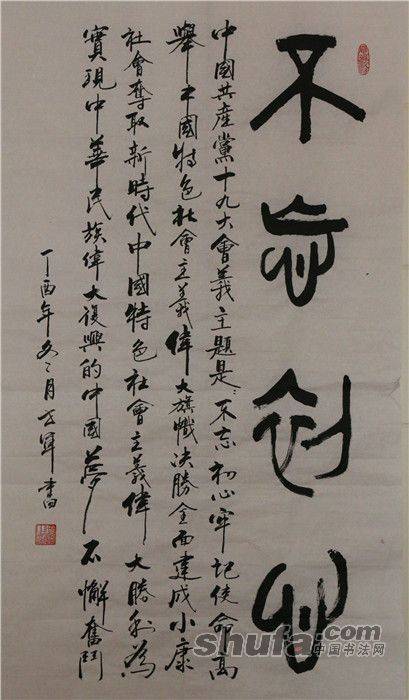 不忘初心
中國共產黨十九大會義主題是:不忘初心牢記使命高
舉中國特色社會主義偉大旗幟決勝全面建成小康
社會奪取新時代中國特色社會主義偉大勝利為
實現中華民族偉大復興的中國夢不懈奮鬥
丁酉年冬月軍書
shufa.com
中国书法网